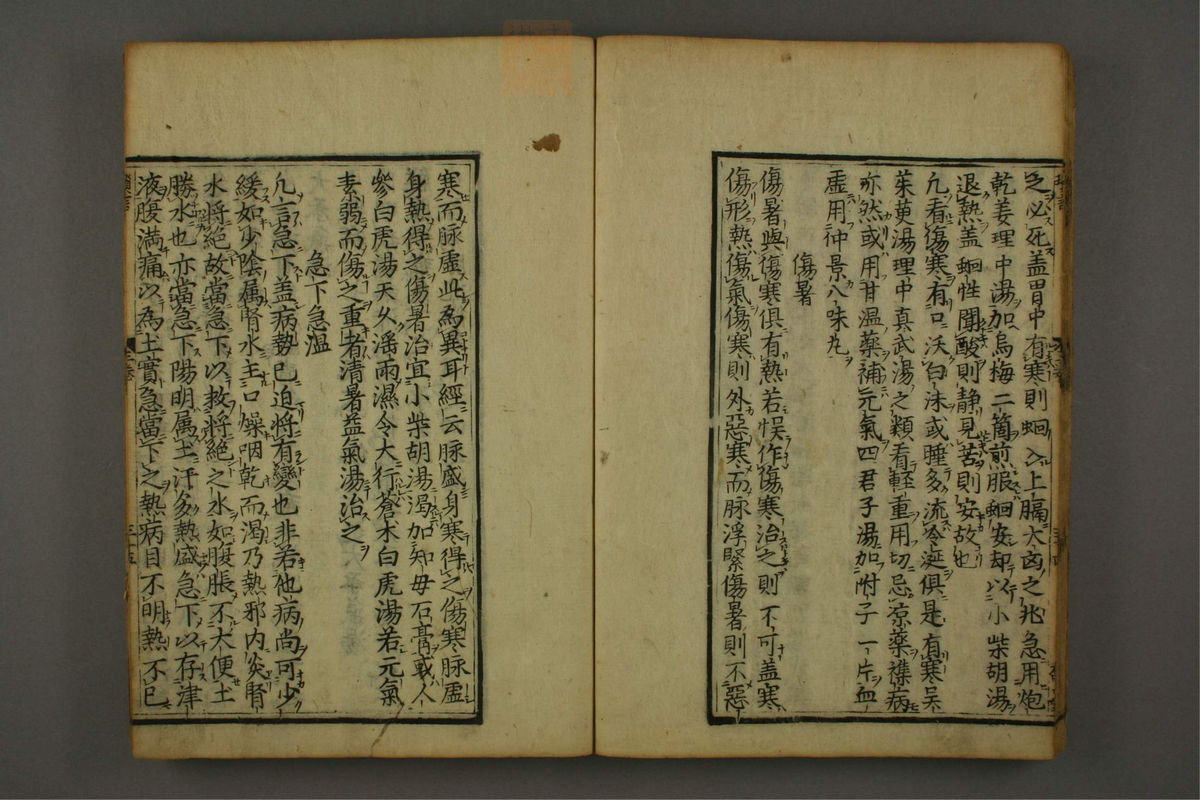 乏必死盖胃中有寒則蛔入上膈大凶之兆急用炮
乾姜理中湯加烏梅二箇煎服蛔安却以小柴胡湯
退熱盖蛔性聞酸則静見苦則安故也
凢看傷寒有口沃白沫或唾多流冷涎俱是有寒吴
茱萸湯理中真武湯之類看輕重用切忌凉藥襍病
亦然或用甘温藥補元氣四君子湯加附子一片血
虚用仲景八味丸
傷暑
傷暑與傷寒俱有熱若悮作傷寒治之則不可盖寒
傷形熱傷氣傷寒則外惡寒而脉浮緊傷暑則不惡
寒而脉虚此為異耳經云脉盛身寒得之傷寒脉虚
身熱得之傷暑治宜小柴胡湯渴加知母石膏或人
參白虎湯天久滛雨濕令大行蒼朮白虎湯若元氣
素弱而傷之重者清暑益氣湯治之
急下急溫
凢言急下盖病勢已迫將有變也非若他病尚可少
緩如少陰属腎水主口燥咽乾而渴乃熱邪内炎腎
水將絕故當急下以救將絕之水如腹脹不大便土
勝水也亦當急下陽明属土汗多熱盛急下以存津
液腹滿痛以為土實急當下之熱病目不明熱不已